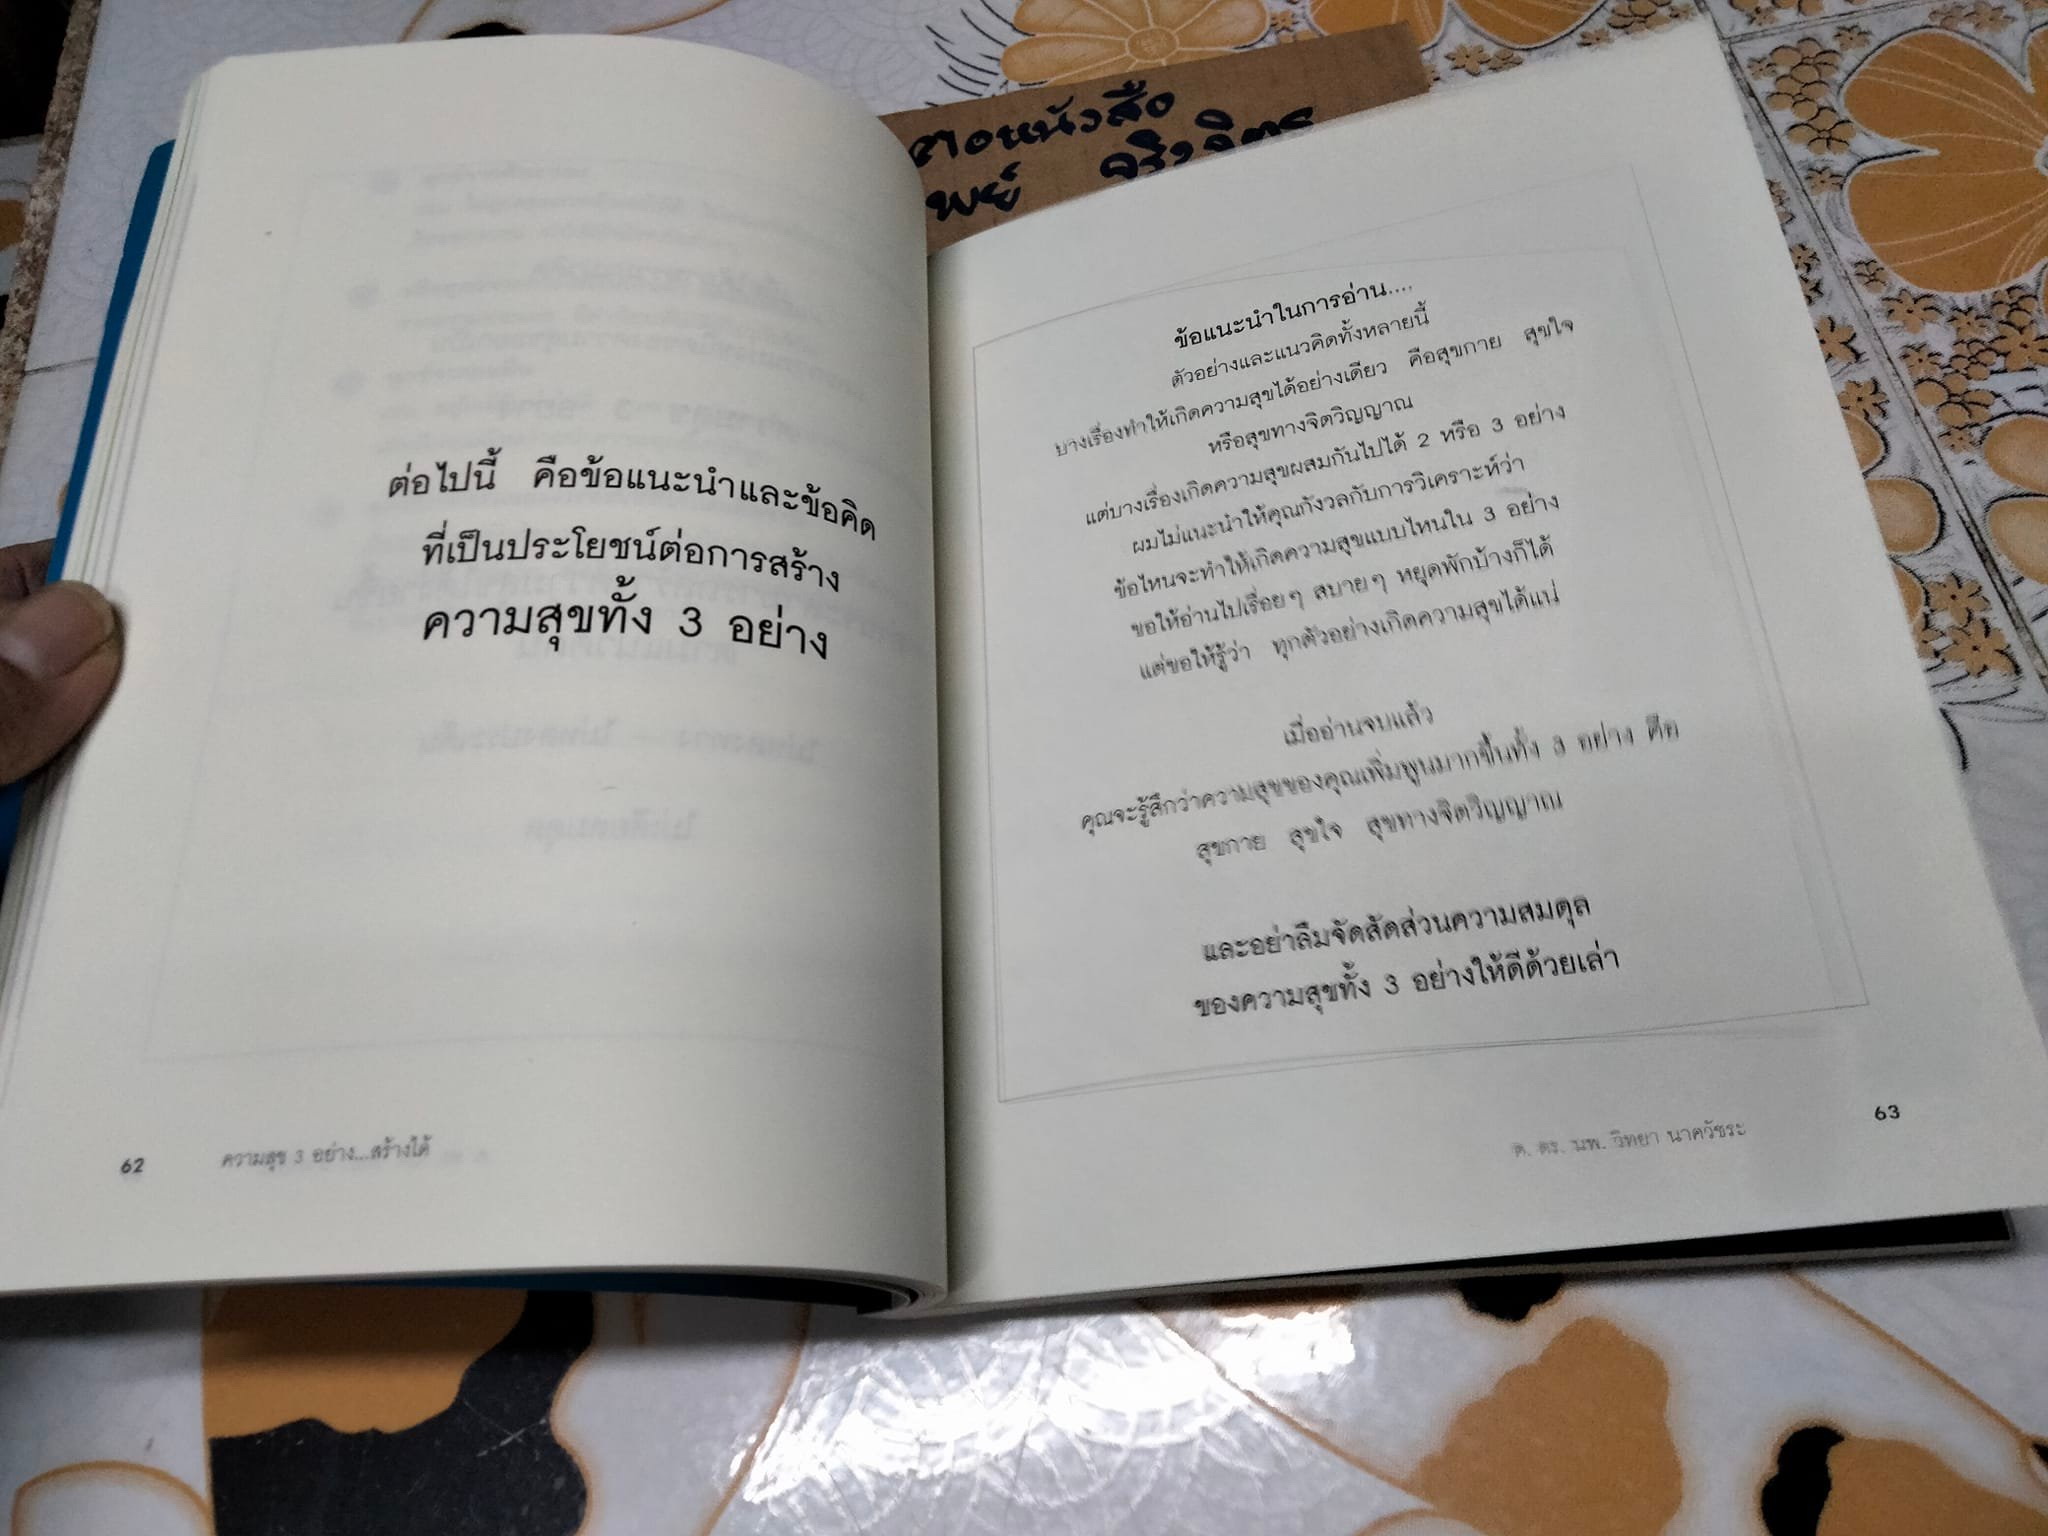 ต่อไปนี้ คือข้อแนะนำและข้อคิด
ที่เป็นประโยชน์ต่อการสร้าง
ความสุขทั้ง 3 อย่าง
62 ความสุข 3 อย่าง...สร้างได้
ตอหนังสือ
พย์ จริงจิตร
ข้อแนะนำในการอ่าน....
ตัวอย่างและแนวคิดทั้งหลายนี้
บางเรื่องทำให้เกิดความสุขได้อย่างเดียว คือสุขกาย สุขใจ
หรือสุขทางจิตวิญญาณ
แต่บางเรื่องเกิดความสุขผสมกันไปได้ 2 หรือ 3 อย่าง
ผมไม่แนะนำให้คุณกังวลกับการวิเคราะห์ว่า
ข้อไหนจะทำให้เกิดความสุขแบบไหนใน 3 อย่าง
ขอให้อ่านไปเรื่อยๆ สบายๆ หยุดพักบ้างก็ได้
แต่ขอให้รู้ว่า ทุกตัวอย่างเกิดความสุขได้แน่
เมื่ออ่านจบแล้ว
คุณจะรู้สึกว่าความสุขของคุณเพิ่มพูนมากขึ้นทั้ง 3 อย่าง คือ
สุขกาย สุขใจ สุขทางจิตวิญญาณ
และอย่าลืมจัดสัดส่วนความสมดุล
ของความสุขทั้ง 3 อย่างให้ดีด้วยเล่า
ศ. ดร. นพ. วิทยา นาควัชระ 63